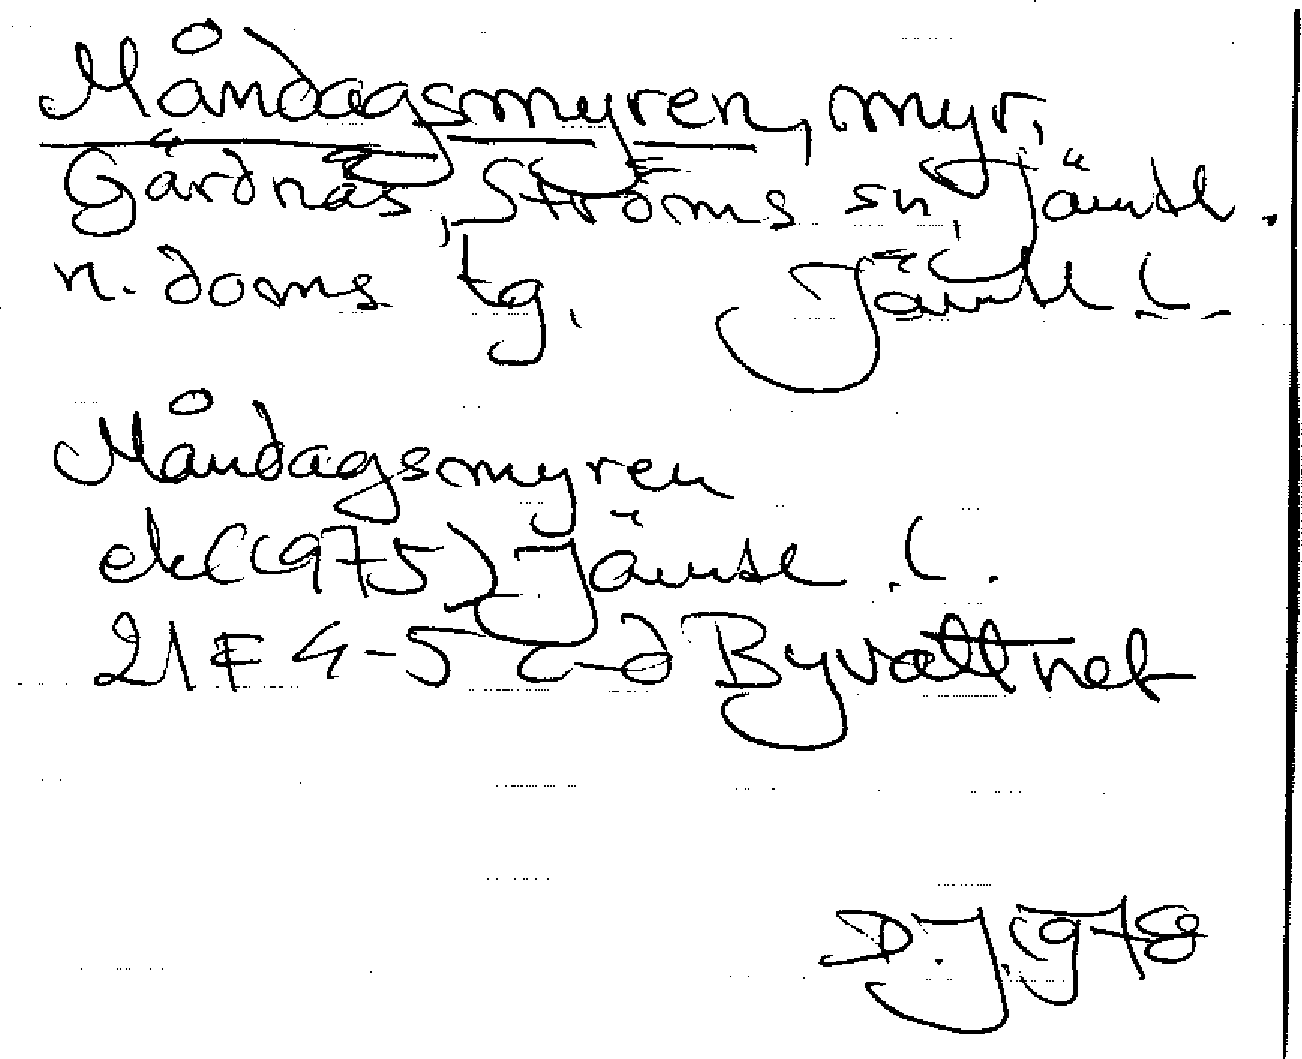 Måndagsmyren, myr,
Gärdnäs, Ströms sn, Jämtl.
n. doms tg, Jämtl l.
Måndagsmyren
ek (1975) Jämtl. l.
21 F 4-5 c-d Byvattnet
D. J. 1978